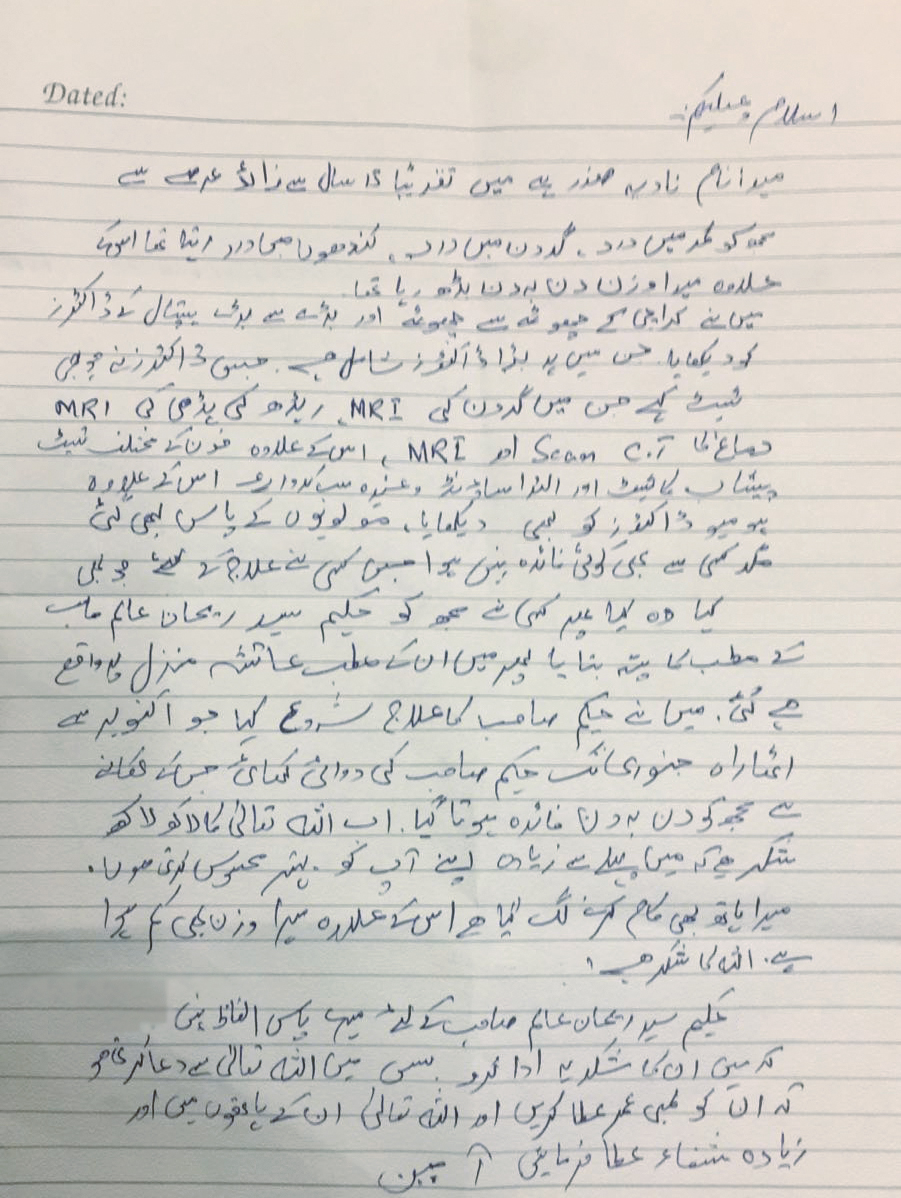 Dated:
اسلام وعلیکم:۔
میرا نام نادیہ صفدر ہے میں تقریباً 15 سال سے زائد عرصے سے
مجھ کو کمر میں درد، گردن میں درد، کندھوں میں درد رہتا تھا اس کے
علاوہ میرا وزن دن بہ دن بڑھ رہا تھا۔
میں نے کراچی کے چھوٹے سے چھوٹے اور بڑے سے بڑے ہپتال کے ڈاکٹرز
کو دیکھایا۔ جن میں ہر بڑا ڈاکٹرز شامل ہے۔ جس ڈاکٹرز نے جو بھی
ٹیسٹ کہے جن میں گردن کی MRI، ریڑھ کی ہڈھی کی MRI
دماغ کا C.T Scan اور MRI، اس کے علاوہ خون کے مختلف ٹیسٹ
پیشاب کا ٹیسٹ اور الٹراساؤنڈ وغیرہ سب کروائے اس کے علاوہ
ہومیو ڈاکٹرز کو بھی دیکھایا، مولویوں کے پاس بھی گئی
مگر کسی سے بھی کوئی فائدہ نہیں ہوا جس کسی نے علاج کے لئے جو بھی
کہا وہ کیا پھر کسی نے مجھ کو حکیم سید ریحان عالم صاحب
کے مطب کا پتہ بتایا پھر میں ان کے مطب عائشہ منزل پر واقع
ہے گئی۔ میں نے حکیم صاحب کا علاج شروع کیا جو اکتوبر سے
اٹھاراہ جنوری تک حکیم صاحب کی دوائی کھائی جس کے کھانے
سے مجھ کو دن بہ دن فائدہ ہوتا گیا۔ اب اللہ تعالیٰ کا لاکھ لاکھ
شکر ہے کہ میں پہلے سے زیادہ اپنے آپ کو بہتر محسوس کرتی ہوں۔
میرا ہاتھ بھی کام کرنے لگ گیا ہے اس کے علاوہ میرا وزن بھی کم ہوا
ہے۔ اللہ کا شکر ہے،
حکیم سید ریحان عالم صاحب کے لئے میرے پاس الفاظ نہیں
کہ میں ان کا شکریہ ادا کرو۔ بس میں اللہ تعالیٰ سے دعا کرتی ہو
کہ ان کو لمبی عمر عطا کریں اور اللہ تعالیٰ ان کے ہاتھوں میں اور
زیادہ شفاء عطا فرمائیں آمین